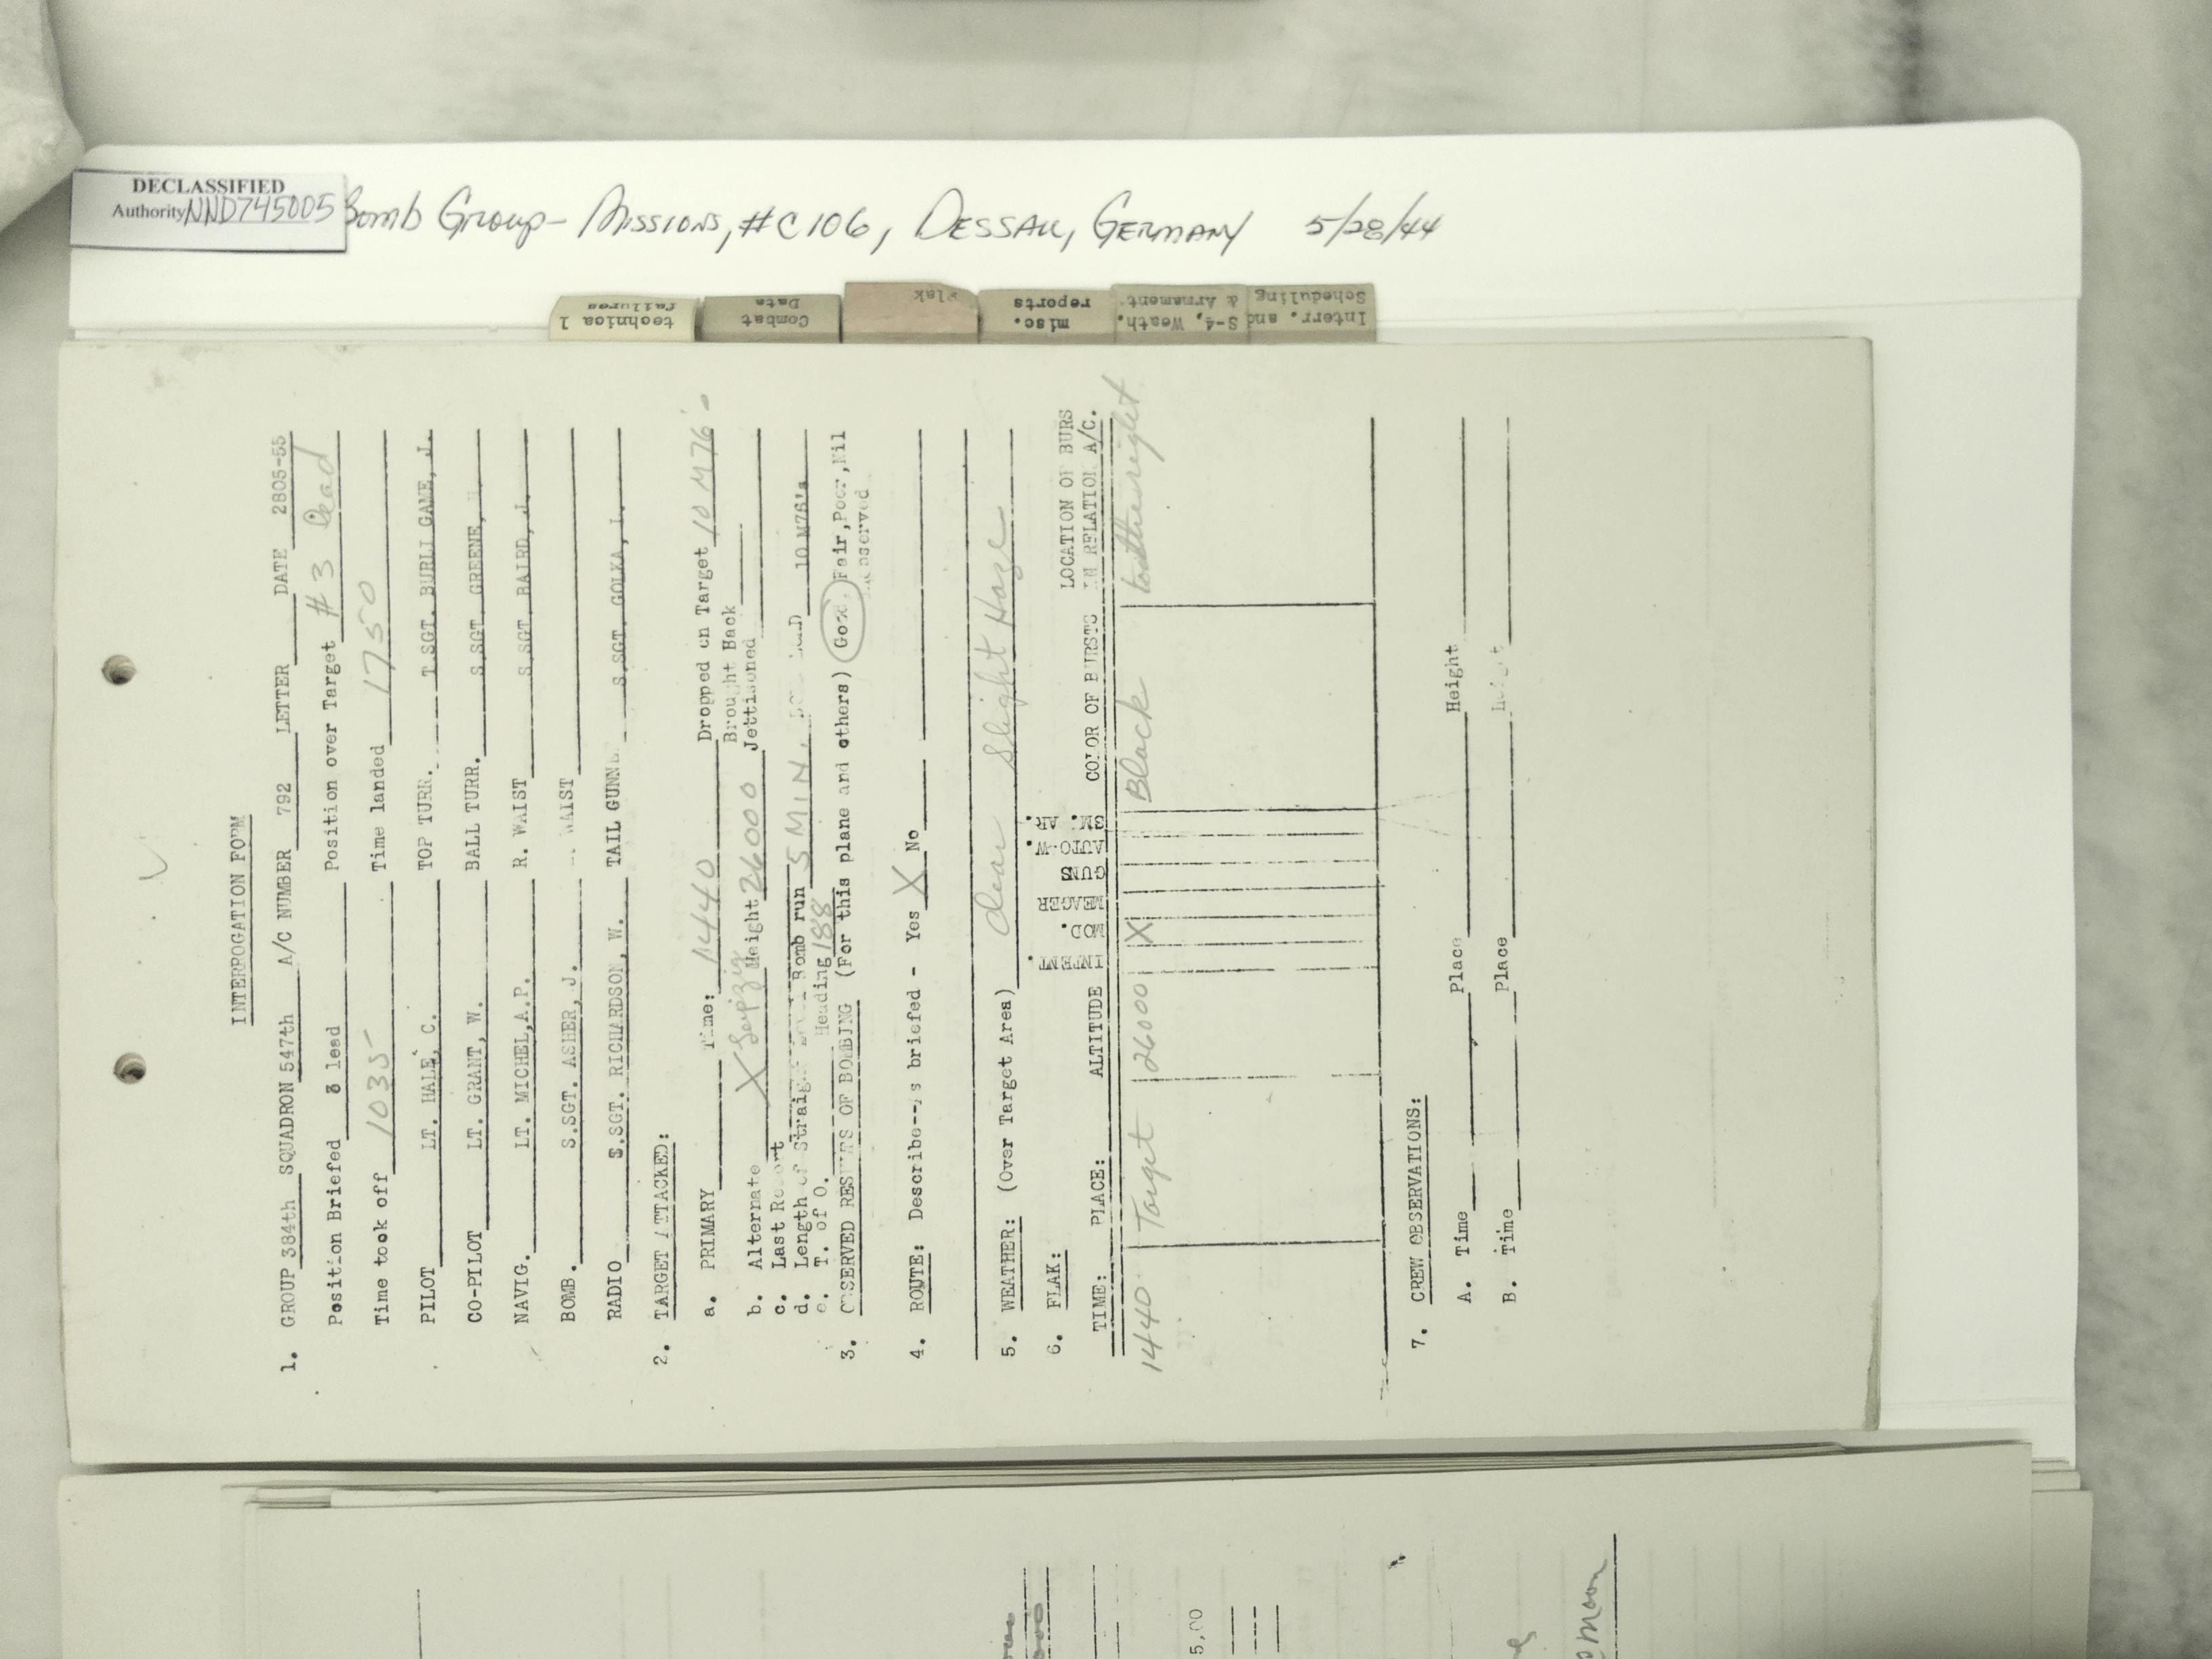 DECLASSIFIED
Authority NND745005
Bomb Group - Missions, #C106, Dessau, Germany 5/28/44
technical failures
Combat Data
Flak
misc. reports
S-4, Weath. & Armament.
Interr. and Scheduling
INTERROGATION FORM
1. GROUP 384th SQUADRON 547th A/C NUMBER 792 LETTER DATE 2805-55
Position Briefed 3 lead Position over Target #3 Lead
Time took off 1035 Time landed 1750
PILOT LT. HALE, C. TOP TURR. T.SGT. BURLI GAME, J.
CO-PILOT LT. GRANT, W. BALL TURR. S.SGT. GREENE,
NAVIG. LT. MICHEL, A.P. R. WAIST S.SGT. BAIRD, J.
BOMB. S.SGT. ASHER, J. WAIST
RADIO S.SGT. RICHARDSON, W. TAIL GUNNE S.SGT. GOLKA, L.
2. TARGET ATTACKED:
a. PRIMARY Time: 1440 Dropped on Target 10 M76's
Brought Back
b. Alternate X Leipzig Height 26000 Jettisoned
c. Last Resort
d. Length of Straight Bomb run 5 MIN. 10 M76's
e. T. of O. Heading 188
3. OBSERVED RESULTS OF BOMBING (For this plane and others) Good, Fair, Poor, Nil
Unobserved
4. ROUTE: Describe--As briefed - Yes X No
5. WEATHER: (Over Target Area) Clear Slight Haze
6. FLAK:
TIME: PLACE: ALTITUDE INTENT. MOD. MEAGER GUNS AUTO-W. SM. AR. COLOR OF BURSTS LOCATION OF BURS IN RELATION A/C.
1440 Target 26000 X Black to the right
7. CREW OBSERVATIONS:
A. Time Place Height
B. Time Place Height
5,00